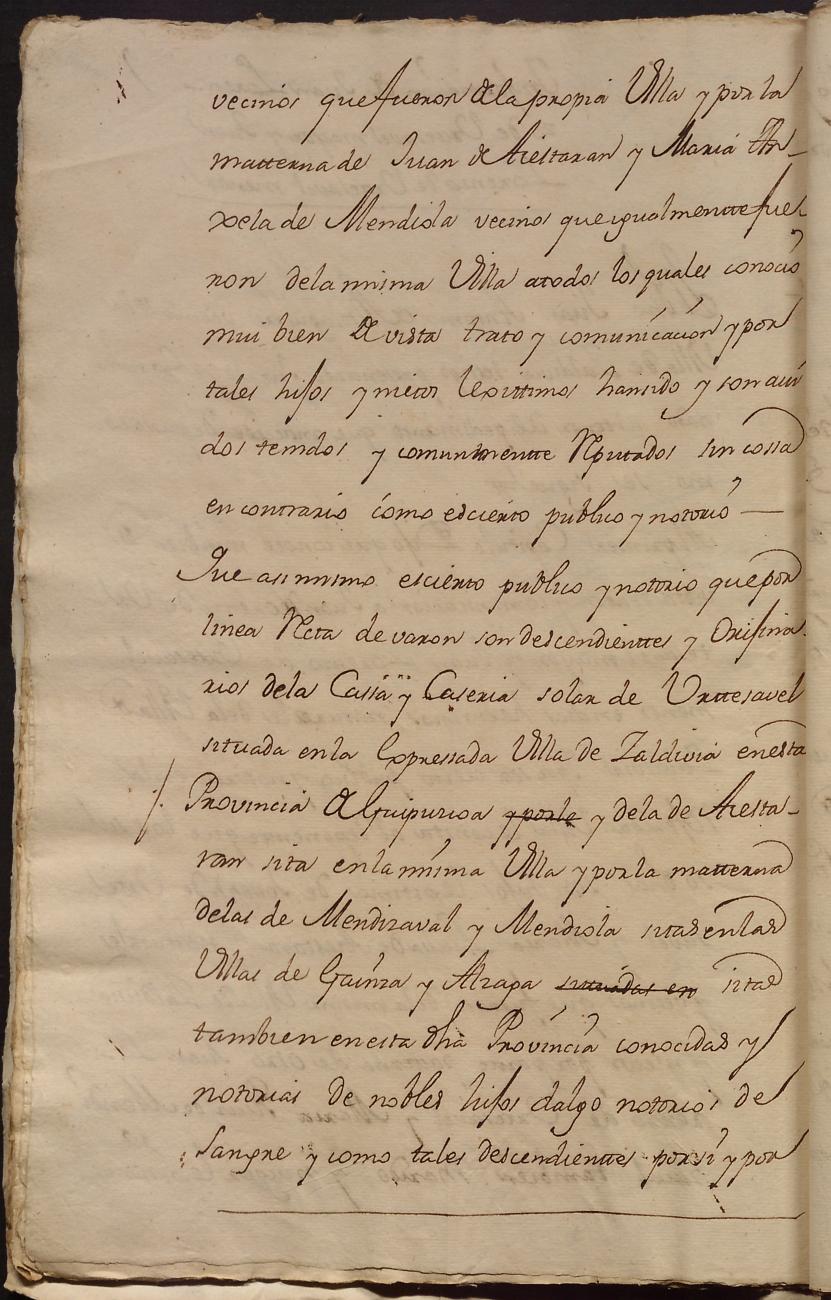 vecinos que fueron de la propia Villa y por la
matterna de Juan de Aiestaran y Maria An-
xela de Mendiola vecinos que igualmentte fue
ron de la misma Villa a todos los quales conocio
mui bien de vista trato y comunicacion y por
tales hijos y nietos lexittimos han sido y son avi
dos tenidos y comunmentte Reputados sin cossa
en contrario como es cierto publico y notorio —
Que asi mismo es cierto publico y notorio que por
linea Recta de varon son descendienttes y Orijina
rios de la Cassa y Caseria solar de Urttesavel
situada en la Expressada Villa de Zaldivia en esta
/. Provincia de Guipuzcoa y por le y de la de Aiesta-
ran sita en la misma Villa y por la matterna
de las de Mendizaval y Mendiola sitas en las
Villas de Gainza y Alzaga situadas en sitas
tambien en esta dha Provincia conocidas y
notorias de nobles hijos dalgo notorios de
sangre y como tales descendienttes por si y por